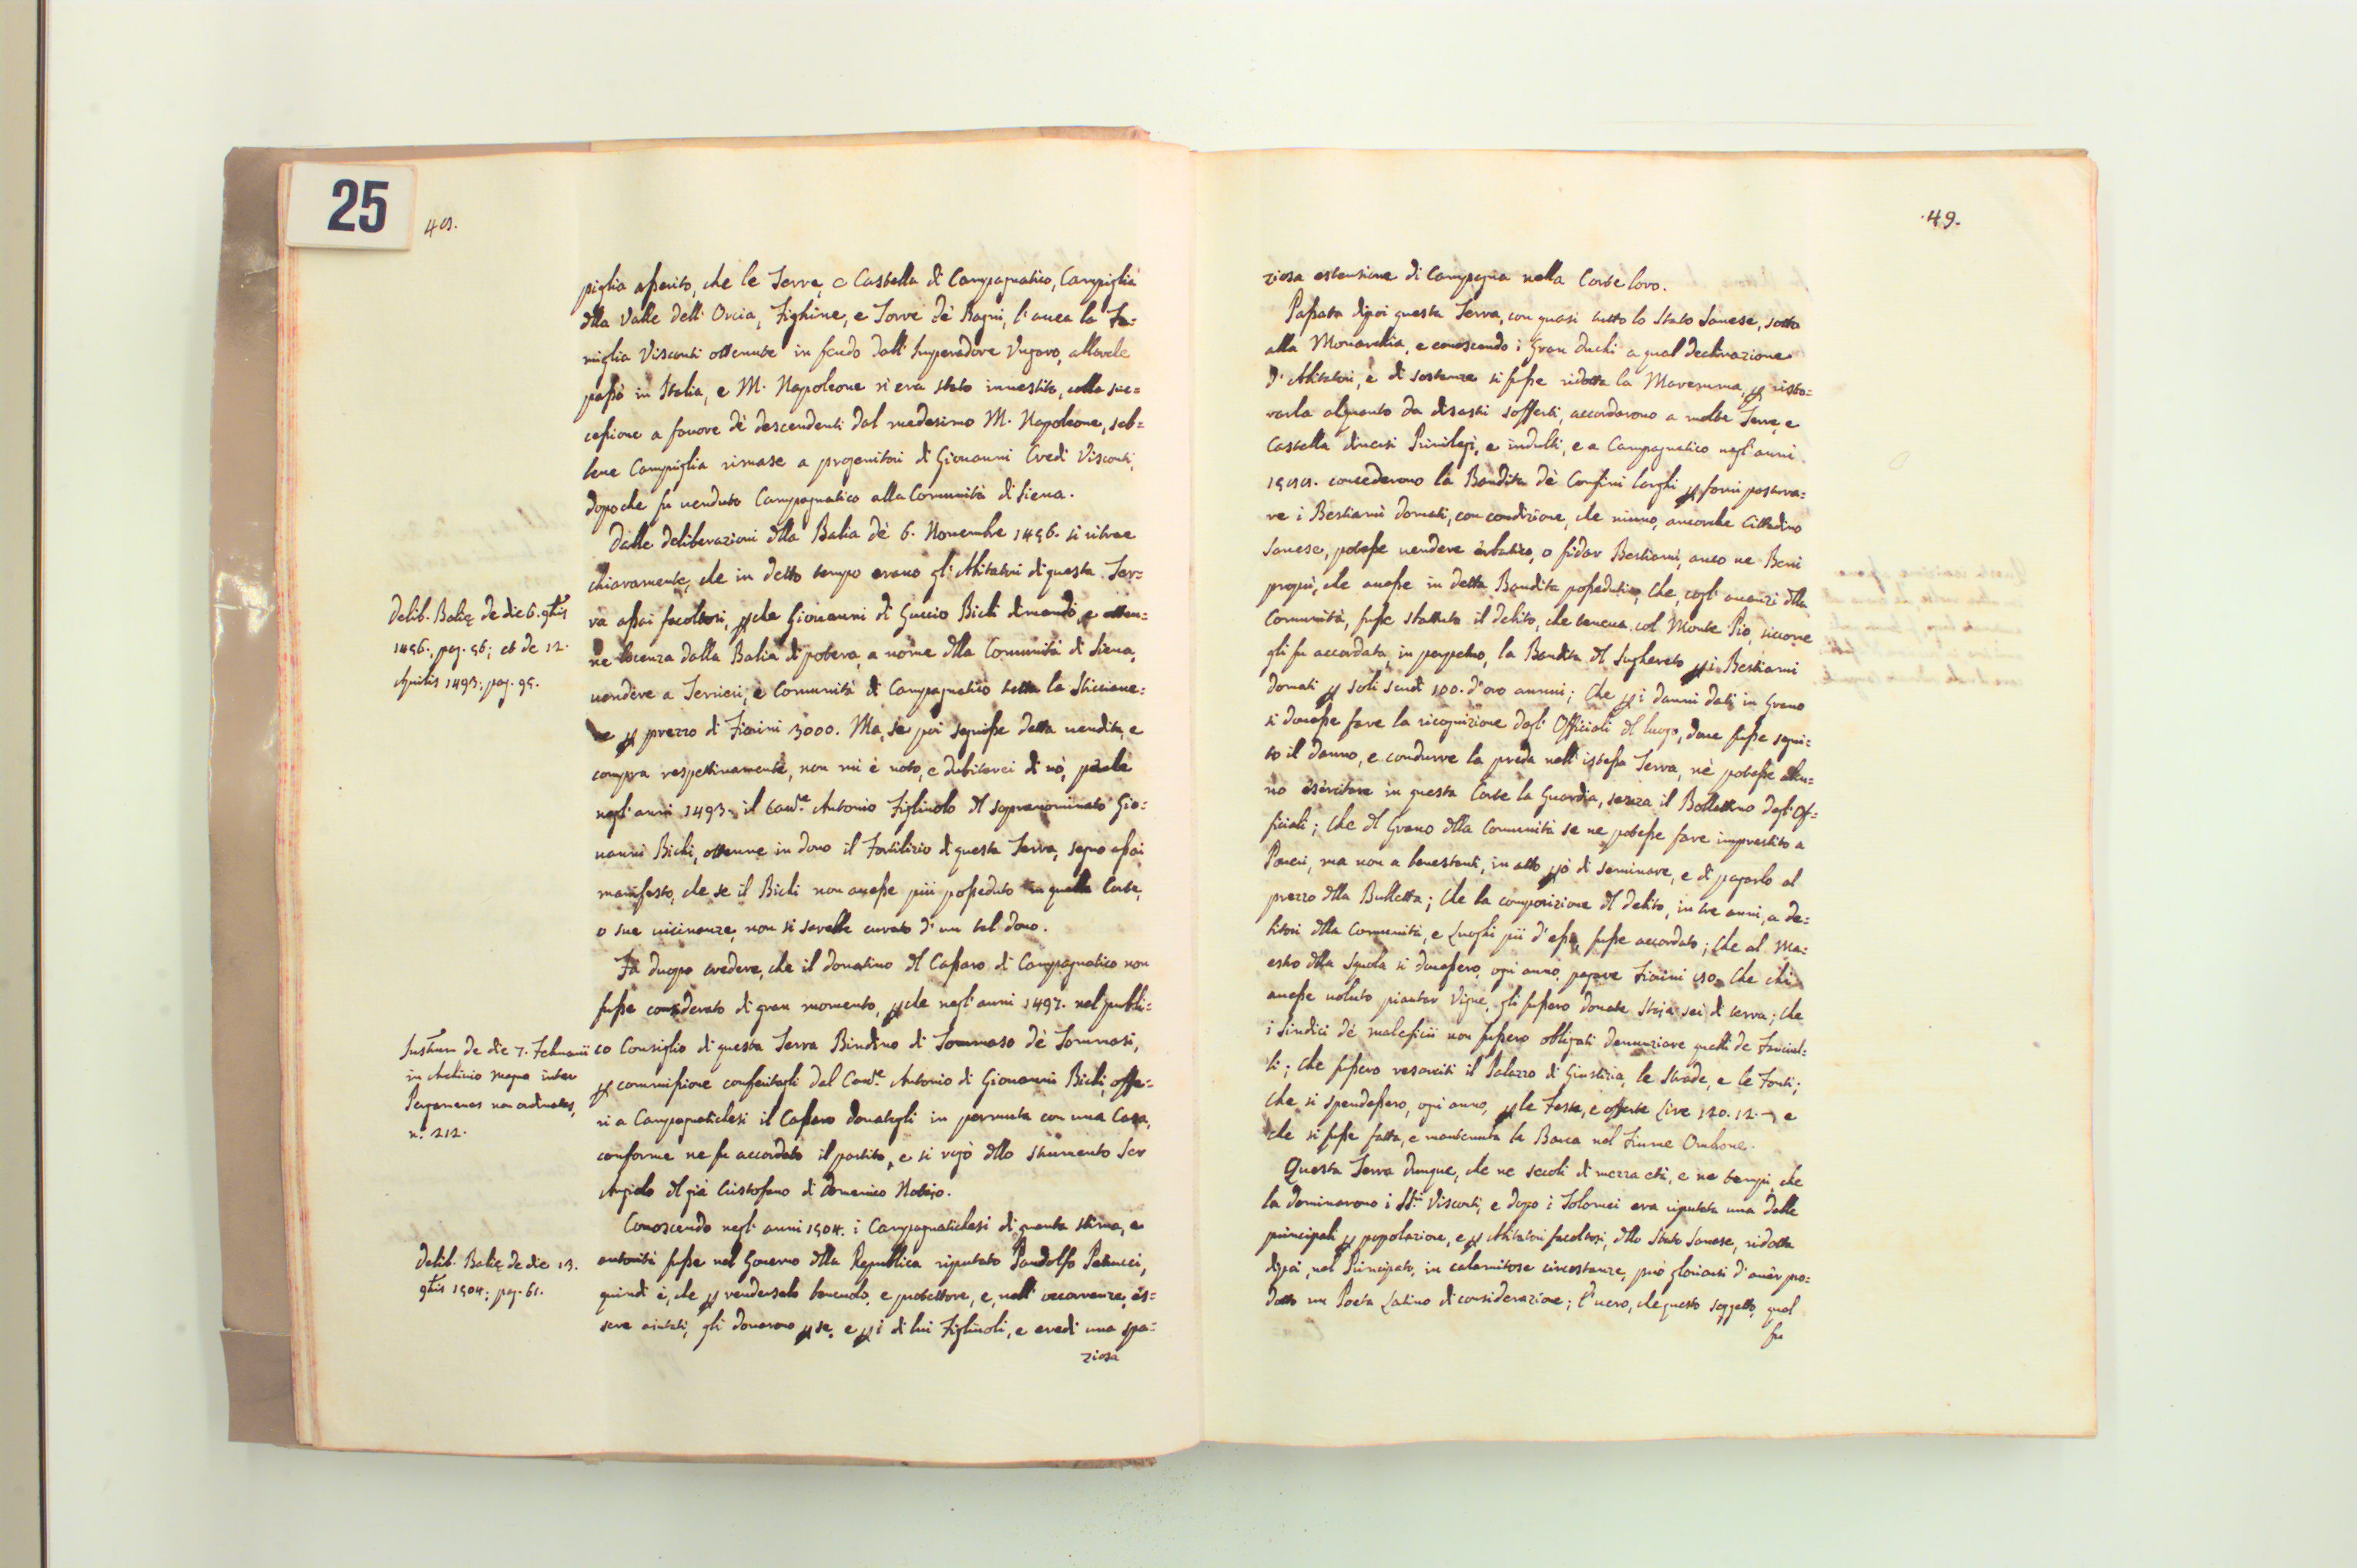 25
48.
piglia asserito, che le Terre, e Castella di Campagnatico, Campiglia
della Valle dell'Orcia, Fighine, e Torre de' Bagni, l'avea la Fa=
miglia Visconti ottenute in feudo dall'Imperadore Ungaro, allorche
passò in Italia, e M. Napoleone n'era stato investito, colla suc=
cessione a favore de' descendenti dal medesimo M. Napoleone, seb=
bene Campiglia rimase a progenitori di Giovanni Credi Visconti,
dopoche fu venduto Campagnatico alla Comunità di Siena.
Dalle deliberazioni della Balia de' 6. Novembre 1456. si ritrae
chiaramente, che in detto tempo erano gl'Abitatori di questa Ter=
ra assai facoltosi, perche Giovanni di Guccio Bichi dimandò, e otten=
ne licenza dalla Balia di poterra, a nome della Comunità di Siena,
vendere a Terrieri, e Comunità di Campagnatico tutta la Sticciane=
se per prezzo di Fiorini 3000. Ma, se poi seguisse detta vendita, e
compra respettivamente, non mi è noto, e dubiterei di nò, perche
negl'anni 1493. il Cav.re Antonio Figliuolo del sopranominato Gio=
vanni Bichi, ottenne in dono il Fortilizio di questa Terra, segno assai
manifesto, che se il Bichi non avesse più posseduto in quella Corte,
o sue vicinanze, non si sarebbe curato d'un tal dono.
Fà duopo credere, che il donativo del Cassaro di Campagnatico non
fusse considerato di gran momento, perche negl'anni 1497. nel publi=
co Consiglio di questa Terra Bindino di Tommaso de' Tommasi,
per commissione conferitagli dal Cav.re Antonio di Giovanni Bichi, offe=
rì a Campagnatichesi il Cassaro donatogli in permuta con una Casa,
conforme ne fu accordato il partito, e si rogò dello strumento Ser
Angiolo del già Cristofano di Domenico Notajo.
Conoscendo negl'anni 1504. i Campagnatichesi di quanta stima, e
autorità fusse nel Governo della Republica riputato Pandolfo Petrucci,
quindi è, che per renderselo benevolo, e protettore, e, nell'occorrenze, es=
sere aiutati, gli donarono per se, e per i di lui Figliuoli, e eredi una spa=
ziosa
Delib. Balię de die 6. 9bris
1456., pag. 56; et de 12.
Aprilis 1493: pag. 95.
Instrum. de die 7. Februarii
in Archivio magno inter
Pergamenas non ordinatas,
n.° 212.
Delib. Balię de die 13.
9bris 1504: pag. 61.
49.
ziosa estensione di Campagna nella Corte loro.
Passata dipoi questa Terra, con quasi tutto lo Stato Sanese, sotto
alla Monarchia, e conoscendo i Gran Duchi a qual declinazione
d'Abitatori, e di sostanze si fusse ridotta la Maremma, per risto=
rarla alquanto da disastri sofferti, accordarono a molte Terre, e
Castella diversi Privilegi, e indulti, e a Campagnatico negl'anni
1588. concederono la Bandita de' Confini larghi per farvi pastura=
re i Bestiami domati, con condizione, che niuno, ancorche Cittadino
Sanese, potesse vendere erbatico, o fidar Bestiami, anco ne Beni
proprii, che avesse in detta Bandita posseduti; Che, cogl'avanzi della
Comunità, fusse sbattuto il debito, che teneva col Monte Pio, siccome
gli fu accordata, in perpetuo, la Bandita del Sughereto per i Bestiami
domati per soli scudi 100. d'oro annui; Che per i danni dati in Grano
si dovesse fare la ricognizione dagl'Officiali del luogo, dove fusse segui=
to il danno, e condurre la preda nell'istessa Terra, nè potesse alcu=
no esercitare in questa Corte la Guardia, senza il Bollettino degl'Of=
ficiali; Che del Grano della Comunità se ne potesse fare imprestito a
Poveri, ma non a benestanti, in atto però di seminare, e di pagarlo al
prezzo della Bulletta; Che la composizione del debito, in tre anni, a de=
bitori della Comunità, e Luoghi pii d'essa, fusse accordato; Che al Ma=
estro della Squola si dovessero, ogni anno, pagare Fiorini 50. Che chi
avesse voluto piantar Vigne, gli fussero donate Staja sei di terra; Che
i Sindici de' maleficii non fussero obbligati denunziare quelli de Fanciul=
li; Che fussero resarciti il Palazzo di Giustizia, le Strade, e le Fonti;
Che si spendessero, ogni anno, per le Feste, e offerte Lire 120. 12. -, e
che si fusse fatta, e mantenuta la Barca nel Fiume Ombrone.
Questa Terra dunque, che ne secoli di mezza età, e ne tempi, che
la dominarono i SS.ri Visconti, e dopo i Tolomei era riputata una delle
principali per popolazione, e per Abitatori facoltosi, dello Stato Sanese, ridotta
dipoi, nel Principato, in calamitose circostanze, può gloriarsi d'aver pro=
dotto un Poeta Latino di considerazione; È vero, che questo soggetto, qual
fu